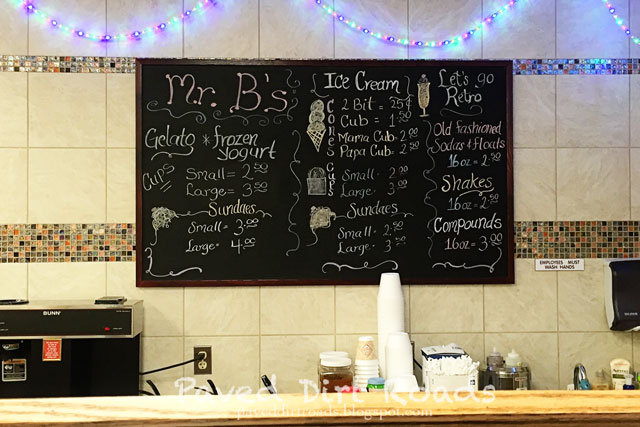 Mr. B's
Gelato * frozen
yogurt
Cups
Small = 2.50
Large = 3.50
Sundaes
Small = 3.00
Large = 4.00
Ice Cream
Cones
2 Bit = 25¢
Cub = 1.50
Mama Cub = 2.00
Papa Cub = 2.50
Cups
Small = 2.00
Large = 3.00
Sundaes
Small = 2.50
Large = 3.50
Let's go
Retro
Old Fashioned
Sodas & Floats
16 oz = 2.50
Shakes
16 oz = 2.50
Compounds
16oz = 3.00
EMPLOYEES MUST
WASH HANDS
BUNN
Paved Dirt Roads
paveddirtroads.blogspot.com